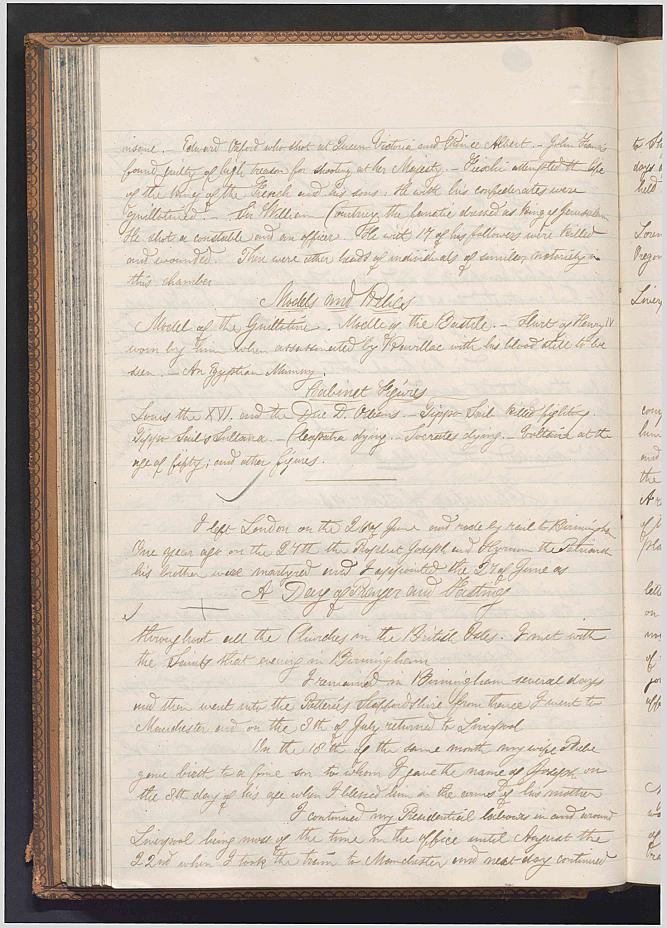 insane. - Edward Oxford who shot at Queen Victoria and Prince Albert. - John Francis
found guilty of high treason for shooting at her Majesty. - Fieschi attempted the life
of the King of the French and his sons. He with his confederates were
guillotined. - Sir William Courtney the fanatic dressed as King of Jerusalem
He shot a constable and an officer. He with 17 of his followers were killed
and wounded. Their were other heads of individuals of similar notoriety in
this chamber
Models and Relics
Model of the Guillotine. Modle of the Bastile. - Shirt of Henry IV
worn by him when assassinated by Ravillac with his blood still to be
seen. - An Egyptian Mummy.
Cabinet Figures
Louis the XVI. and the Duc D. Orleans - Tippo Saib killed fighting.
Tippo Saib's Sultana - Cleopatra dying. - Socrates dying. - Voltaire at the
age of fifty; and other figures.
I left London on the 26th of June and rode by rail to Birmingham
One year ago on the 27th the Prophet Joseph and Hyrum the Patriarch
his brother were martyred and I appointed the 27 of June as
A Day of Prayer and Fasting
throughout all the Churches in the British Isles. I met with
the Saints that evening in Birmingham
I remained in Birmingham several days
and then went into the Potteries Staffordshire from thence I went to
Manchester and on the 8th of July returned to Liverpool
On the 18th of the same month my wife Phebe
gave birth to a fine son to whom I gave the name of Joseph on
the 8th day of his age when I blessed him in the arms of his mother
I continued my Presidential labours in and around
Liverpool being most of the time in the office until August the
22nd when I took the train to Manchester and next day continued